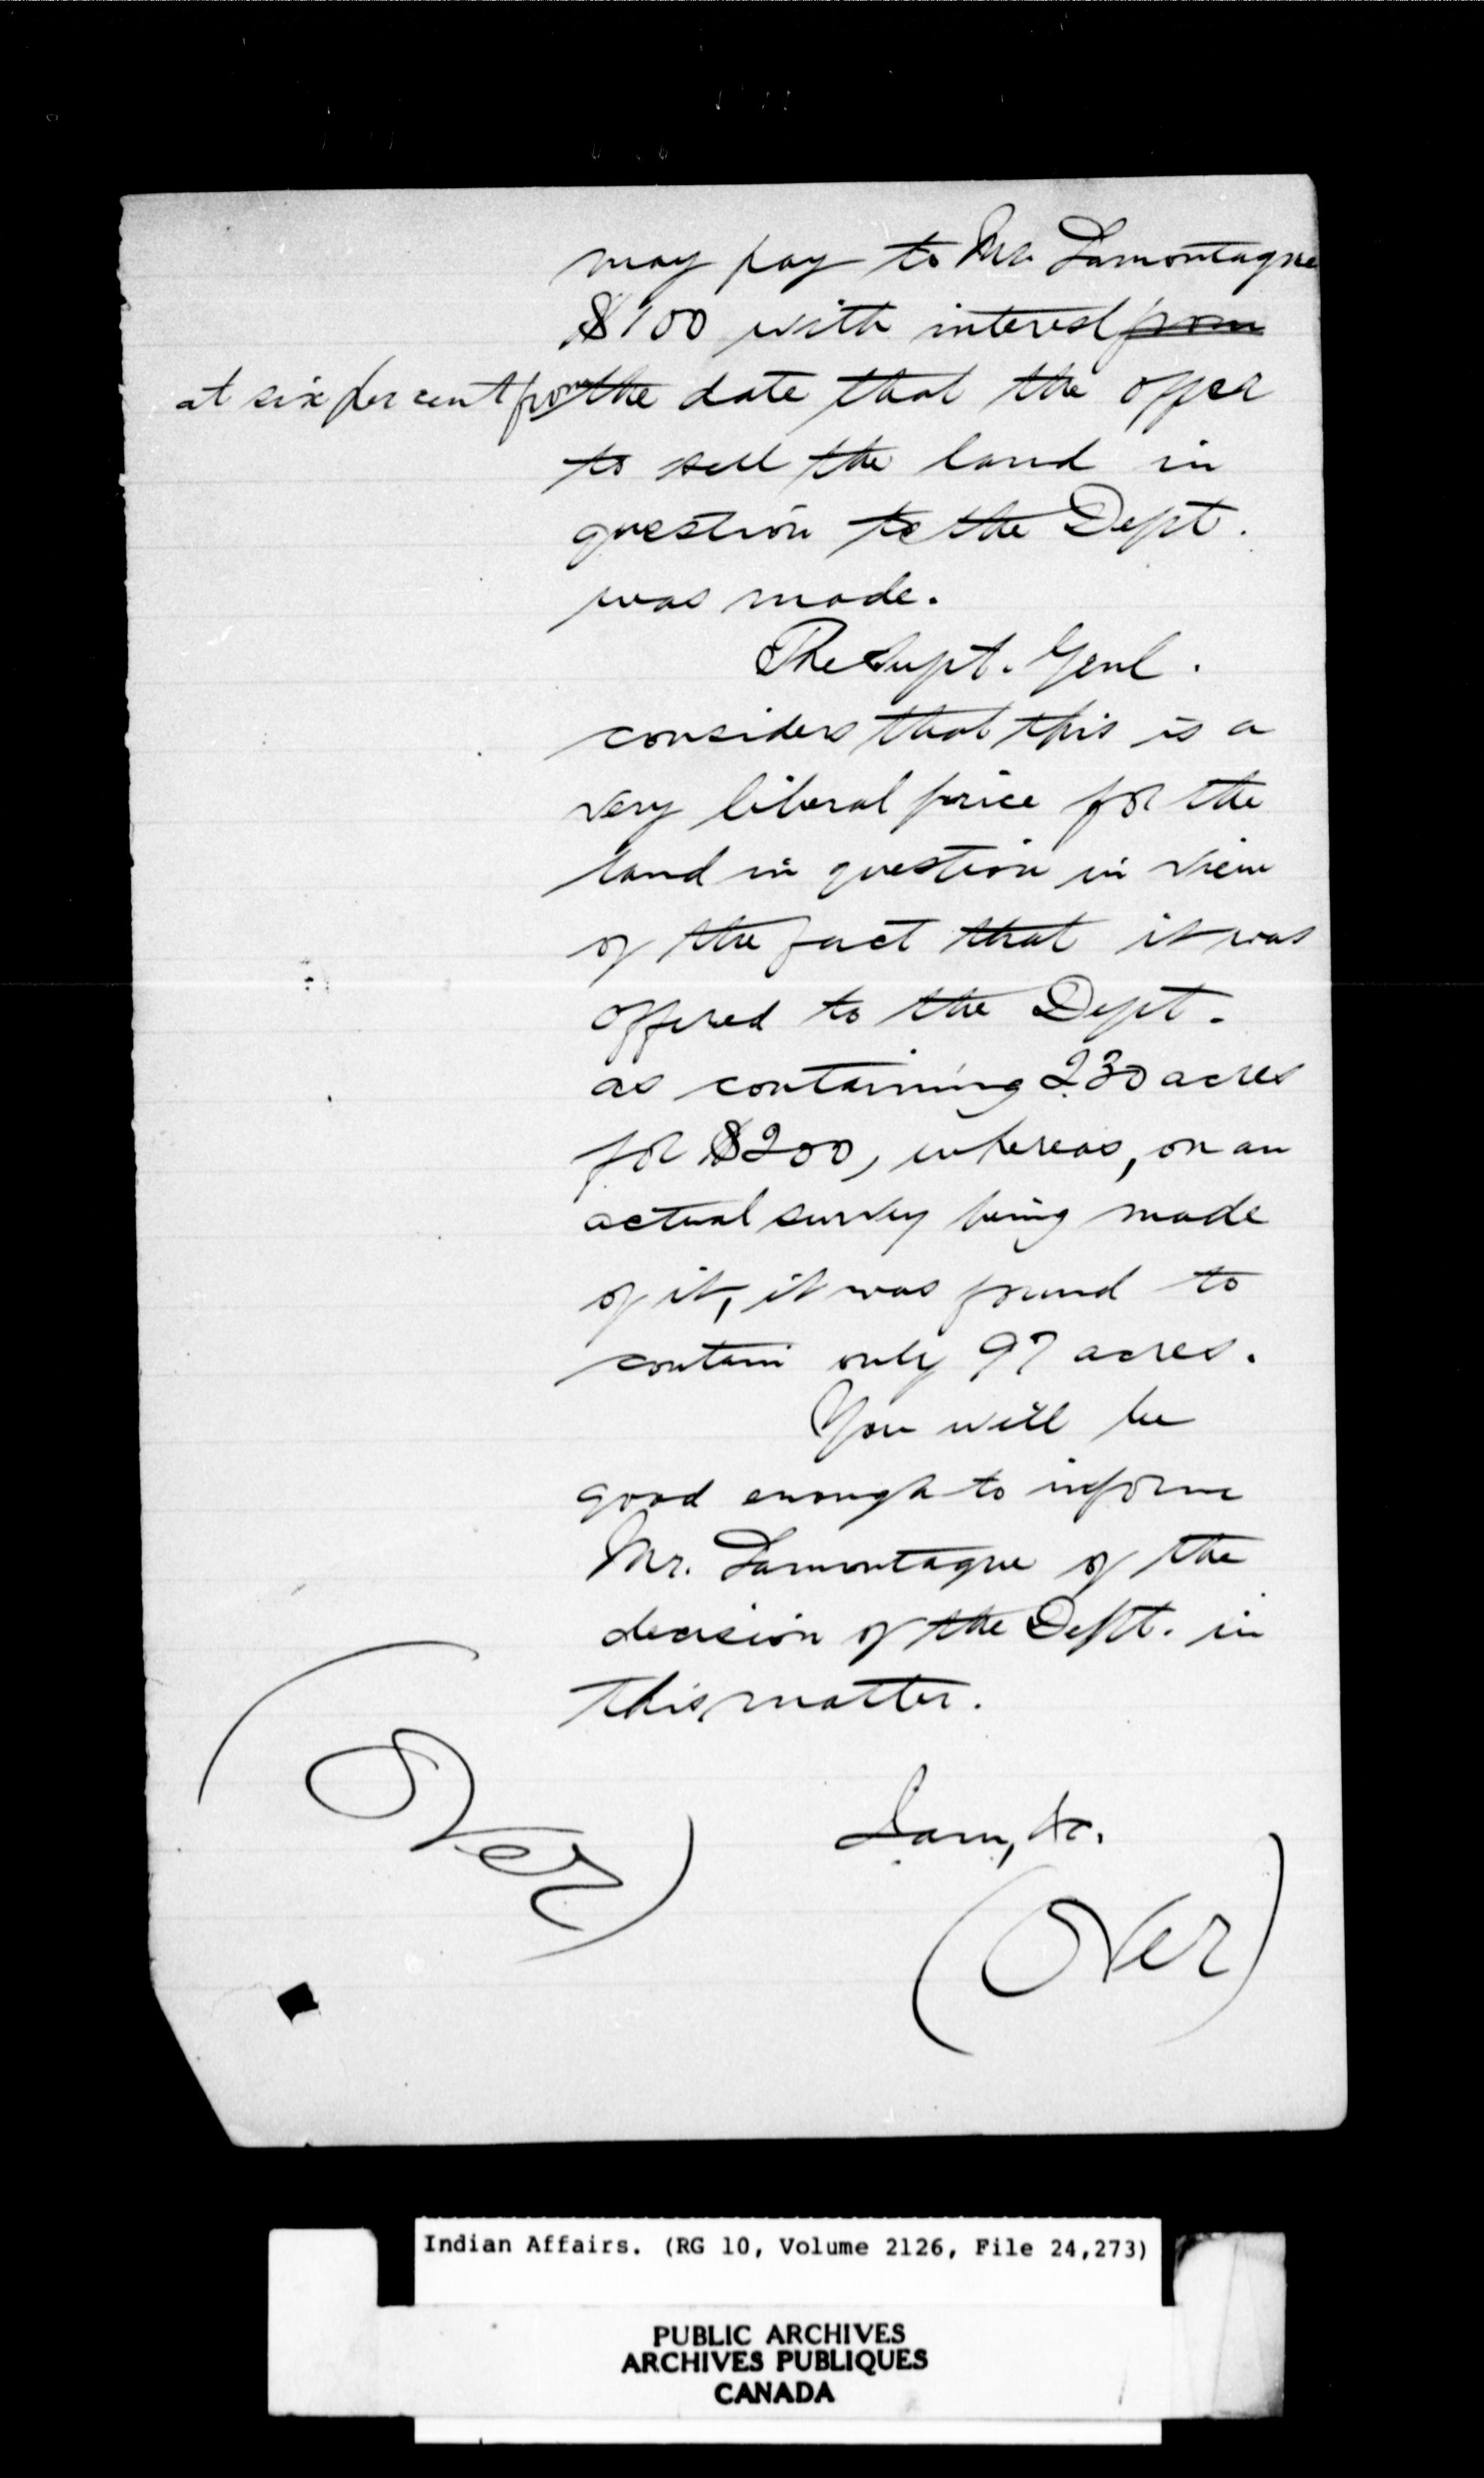 may pay to Mr. Lamontagne
$100 with interest from
at six per cent from the date that the offer
to sell the land in
question to the Dept.
was made.
The Supt. Genl.
considers that this is a
very liberal price for the
land in question in view
of the fact that it was
offered to the Dept.
as containing 230 acres
for $200, whereas, on an
actual survey being made
of it, it was found to
contain only 97 acres.
You will be
good enough to inform
Mr. Lamontagne of the
decision of the Dept. in
this matter.
I am, &c.
(Over)
(Over)
Indian Affairs. (RG 10, Volume 2126, File 24,273)
PUBLIC ARCHIVES
ARCHIVES PUBLIQUES
CANADA